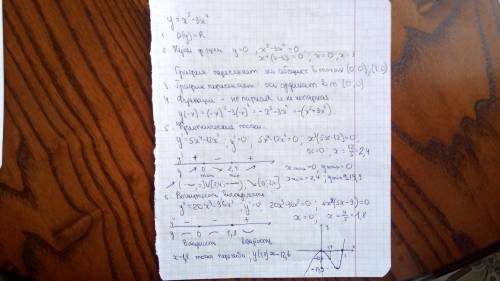 y = x⁵-3x⁴
1. D(y)=R
2. Нули функц. y=0, x⁵-3x⁴=0
x⁴(x-3)=0, x=0, x=3
График пересекает ось абсцисс в точках (0;0), (3;0)
3. График пересекает ось ординат в т (0;0)
4. Функция - не парная и не непарная
y(-x)=(-x)⁵-3(-x)⁴=-x⁵-3x⁴=-(x⁵+3x⁴)
5. Критические точки
y'=5x⁴-12x³, y'=0, 5x⁴-12x³=0, x³(5x-12)=0,
x=0, x=12/5=2,4
y' + - +
y 0 2,4
max min
x max=0, y max=0
x min=2,4
6.
y''=20x³-36x² y''=0 20x³-36x²=0, 4x²(5x-9)=0
x=0, x=9/5=1,8
y'' - - +
y 0 1,8
x=1,8 точка перегиба, y(1,8)≈-12,6